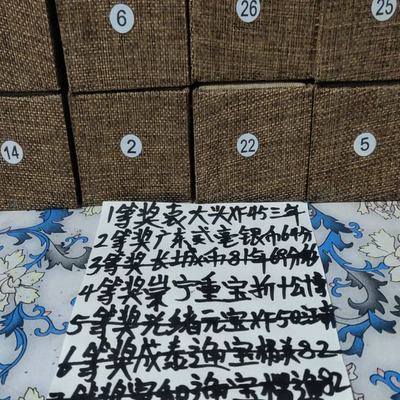 6
26
25
14
2
22
5
1等奖袁大头XF45三年
2等奖广东贰毫银币64分
3等奖长城币81年68分
4等奖崇宁重宝折十公博
5等奖光绪元宝XF50
6等奖咸泰通宝极美82
7等奖宣和通宝 82